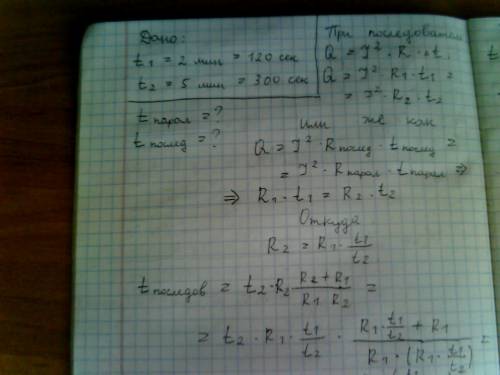 Дано:
t₁ = 2 мин = 120 сек
t₂ = 5 мин = 300 сек
t парал = ?
t послед = ?
При последоват
Q = I² · R · t
Q = I² · R₁ · t₁ =
= I² · R₂ · t₂
или же как
Q = I² · Rпослед · tпослед =
= I² · Rпарал · tпарал ⇒
⇒ R₁ · t₁ = R₂ · t₂
Откуда
R₂ = R₁ · t₁/t₂
tпоследов = t₂ · R₂ · (R₂ + R₁)/(R₁ R₂) =
= t₂ · R₁ · t₁/t₂ · (R₁ · t₁/t₂ + R₁)/(R₁ · (R₁ · t₁/t₂)) =